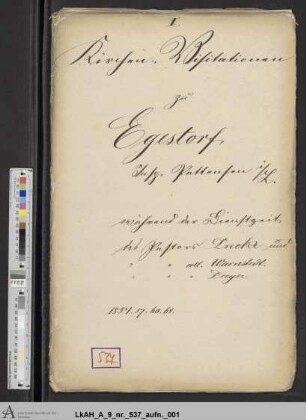 I.
Kirchen-Visitationen
zu
Egestorf,
Insp. Pattensen
während der Dienstzeit
des Pastors Lucke und
" " adj. Warnstedt.
" " Dreyer.
1854. 57. 60. 61.
537
LkAH_A_9_nr._537_aufn._001